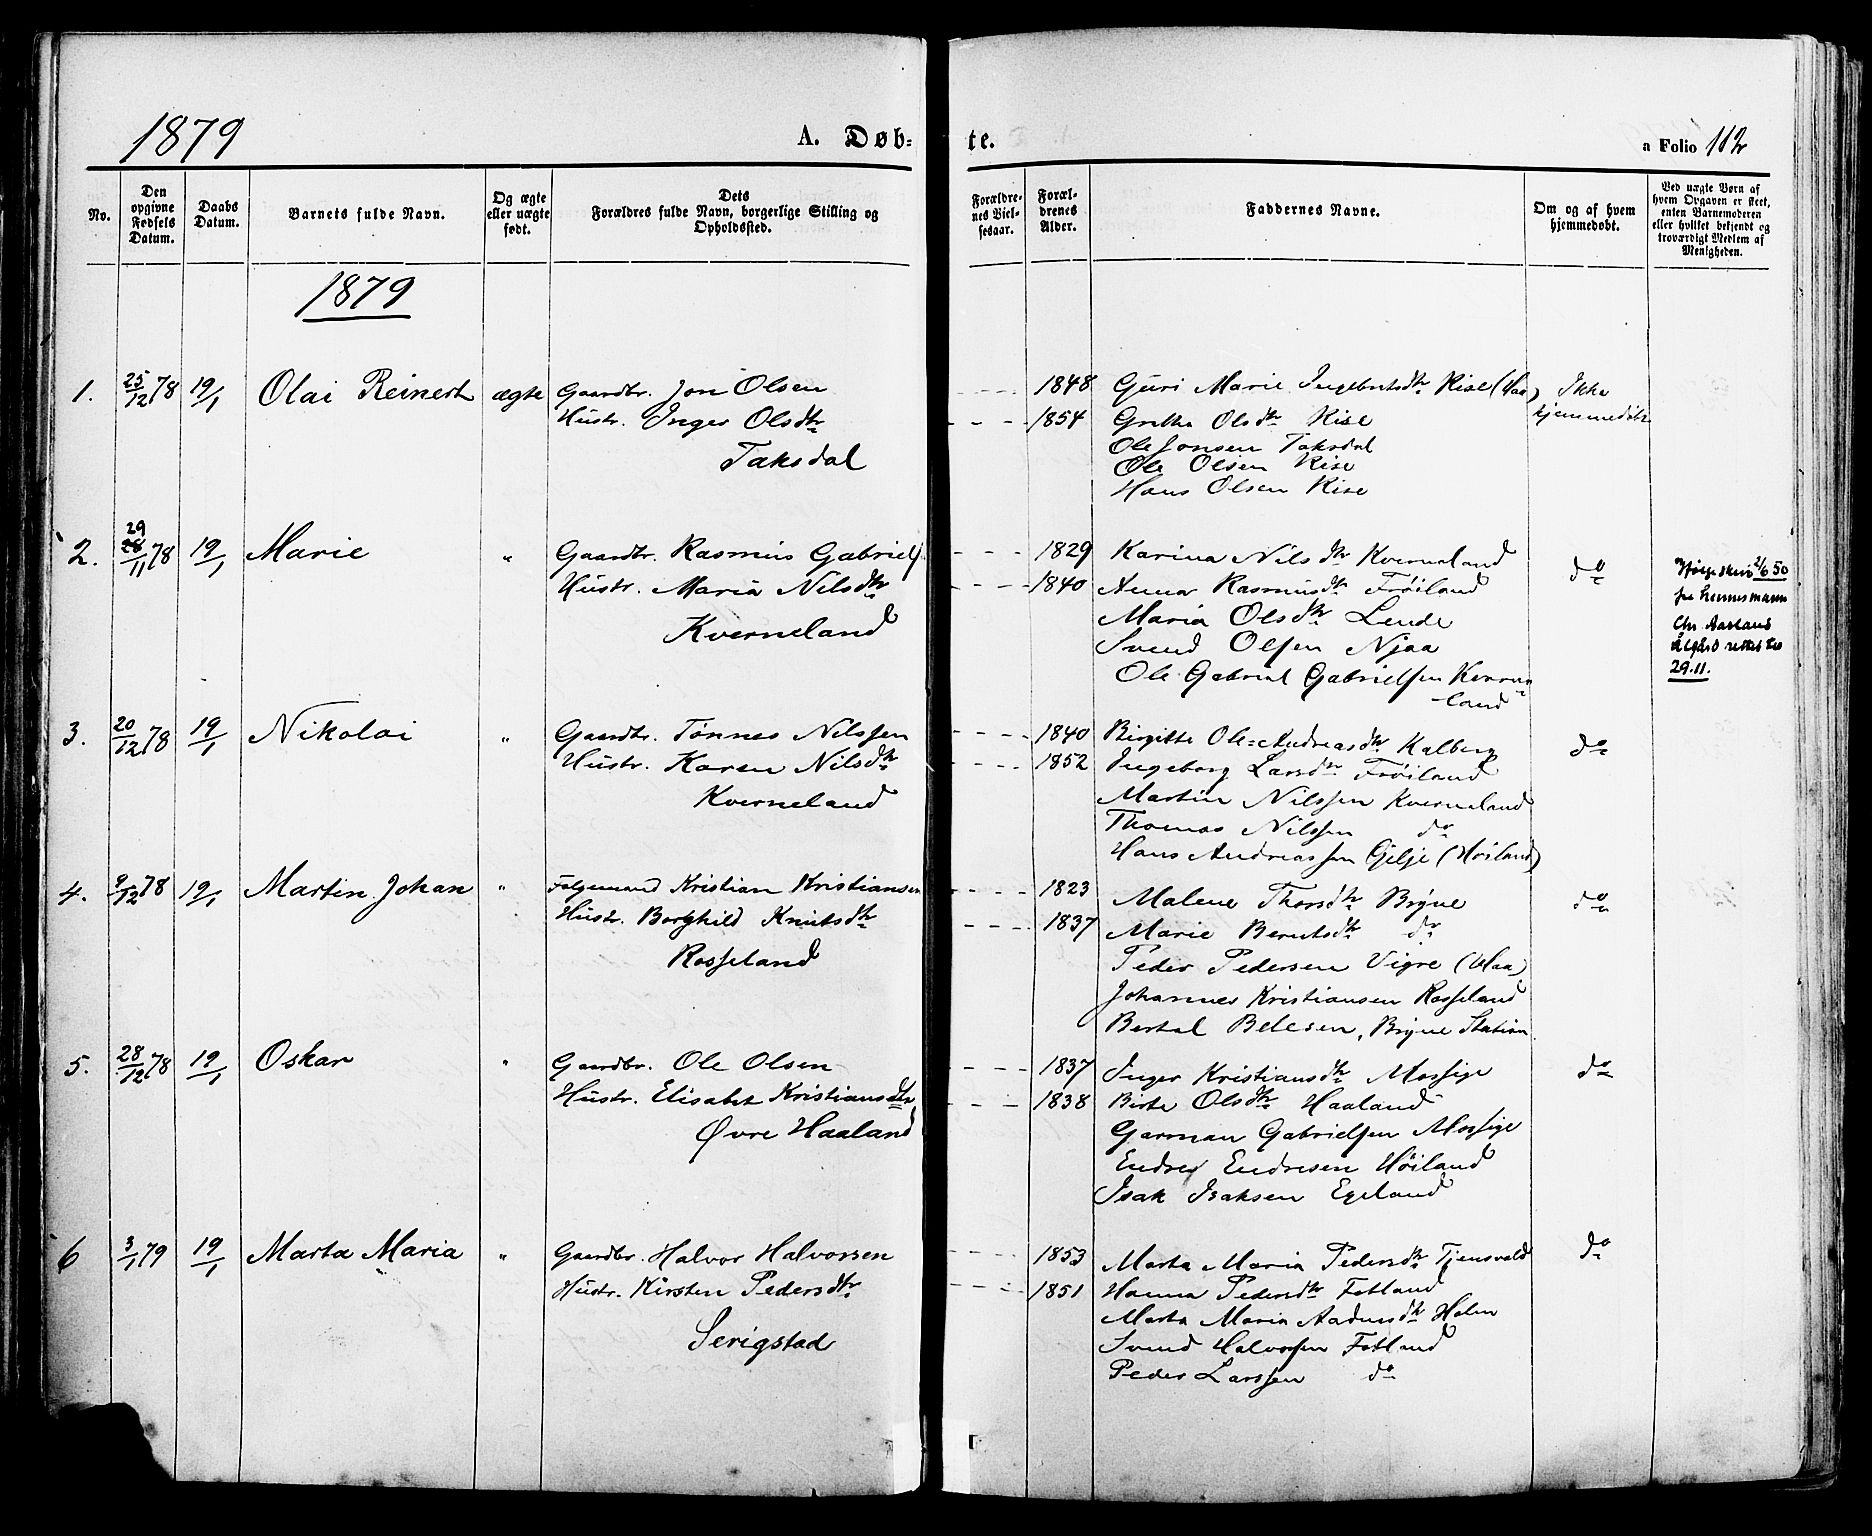 1879
A. Døb-
te.
a Folio 112
No.
Den opgivne Fødsels Datum.
Daabs Datum.
Barnets fulde Navn.
Og ægte eller uægte født.
Dets Forældres fulde Navn, borgerlige Stilling og Opholdssted.
Forældrenes Vielsesaar.
Forældrenes Alder.
Faddernes Navne.
Om og af hvem hjemmedøbt.
Ved uægte Børn af hvem Opgaven er skeet, enten Barnemoderen eller hvilket bekjendt og troværdigt Medlem af Menigheden.
1879
1. 25/12 78 19/1 Olai Reinert ægte Gaardbr. Jon Olsen
Hustr. Inger Olsdtr
Taksdal
1848 Guri Marie Ingebretsdtr Rise (Haa)
1854 Grethe Olsdtr Rise
Ole Jonsen Taksdal
Ole Olsen Rise
Hans Olsen Rise
Ikke hjemmedøbt
2. 29 28/11 78 19/1 Marie " Gaardbr. Rasmus Gabriels.
Hustr. Maria Nilsdtr
Kverneland
1829 Karina Nilsdtr Kverneland
1840 Anna Rasmusdtr Frøiland
Maria Olsdtr Lende
Svend Olsen Njaa
Ole Gabriel Gabrielsen Kverne
-land
do
Ifølge skriv 2/6 50
fra lensmann
Chr. Aarland
Ålgård rettet til
29.11.
3. 20/12 78 19/1 Nikolai " Gaardbr. Tønnes Nilssen
Hustr. Karen Nilsdtr
Kverneland
1840 Birgitte Ole-Andreasdtr Kalberg
1852 Ingeborg Larsdtr Frøiland
Martin Nilssen Kverneland
Thomas Nilssen do
Hans Andreassen Gjelje (Høiland)
do
4. 9/12 78 19/1 Martin Johan " Følgemand Kristian Kristiansen
Hustr. Borghild Knutsdtr
Rosseland
1823 Malene Thorsdtr Bryne
1837 Marie Berntsdtr do
Peder Pedersen Vigre (Haa)
Johannes Kristiansen Rosseland
Bertal Belesen, Bryne Station
do
5. 28/12 78 19/1 Oskar " Gaardbr. Ole Olsen
Hustr. Elisabet Kristiansdtr
Øvre Haaland
1837 Inger Kristiansdtr Mossige
1838 Birte Olsdtr Haaland
Garman Gabrielsen Mossige
Endre Endresen Høiland
Isak Isaksen Egeland
do
6 3/1 79 19/1 Marta Maria " Gaardbr. Halvor Halvorssen
Hustr. Kirsten Pedersdtr
Serigstad
1853 Marta Maria Pedersdtr Tjensvold
1851 Hanna Pedersdtr Fotland
Marta Maria Aadnesdtr Holen
Svend Halvorsen Fotland
Peder Larssen do
do